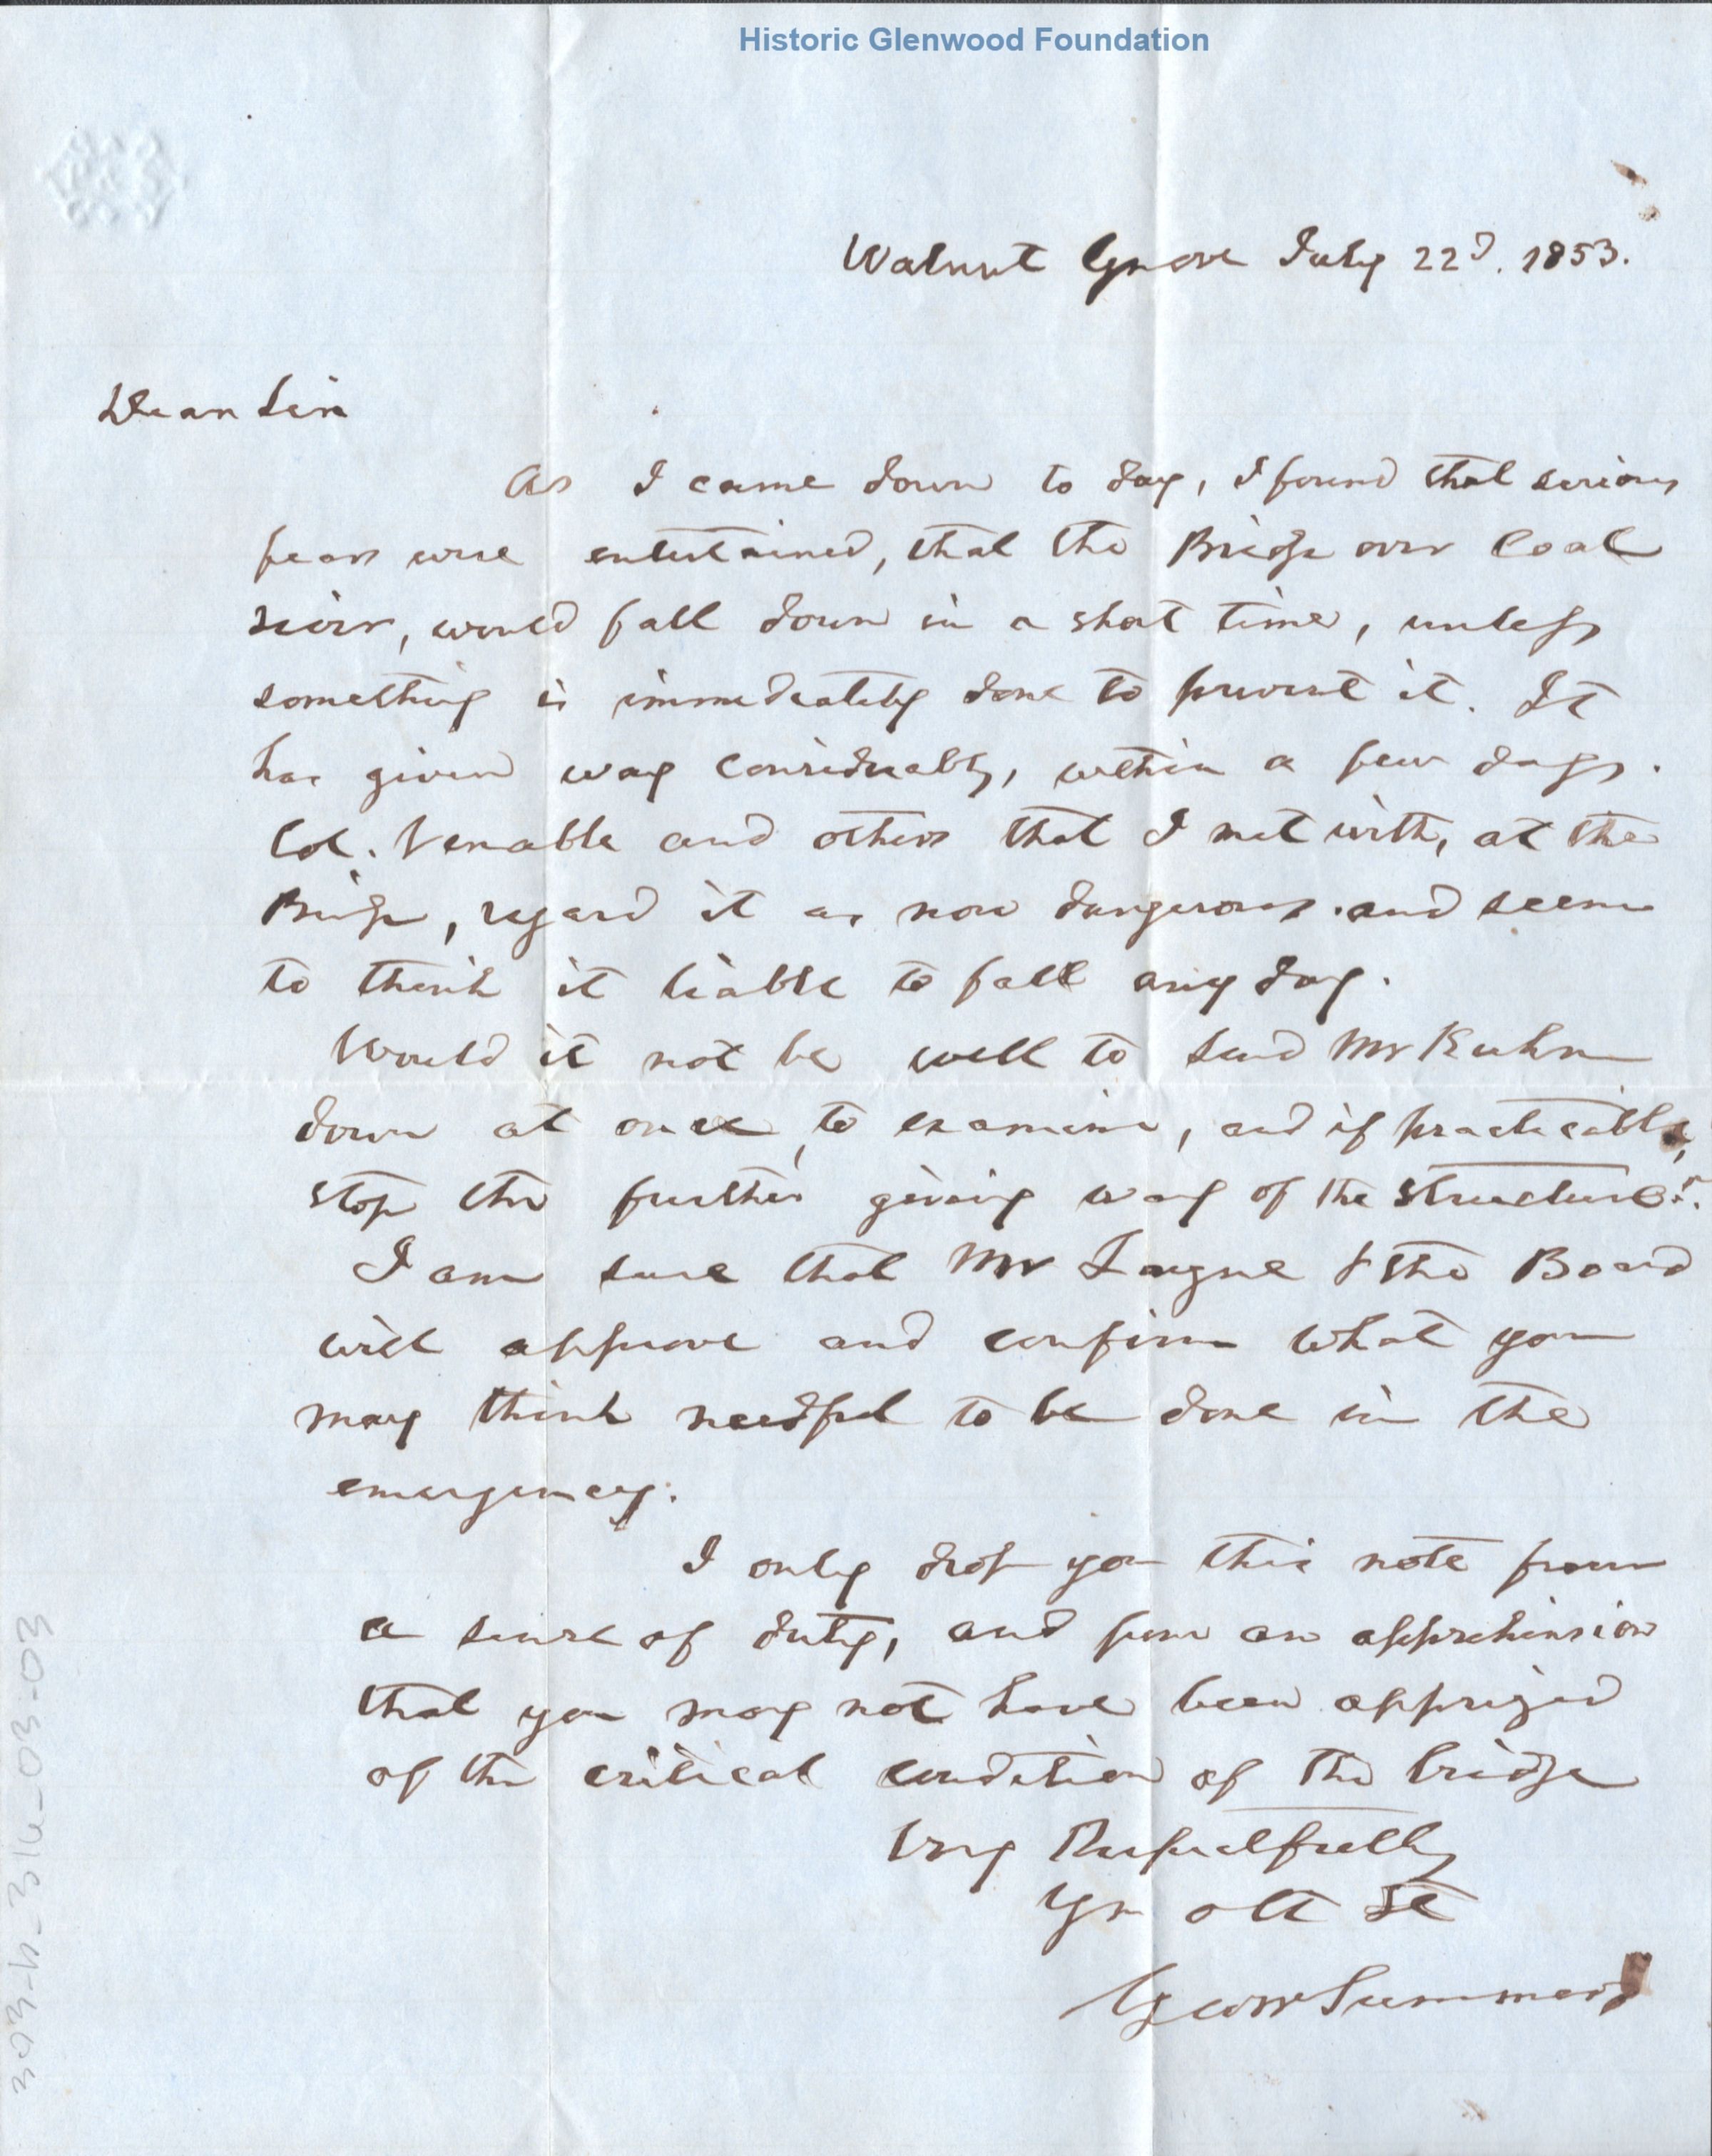 Historic Glenwood Foundation
Walnut Grove July 22d. 1853.
Dear Sir
As I came down to day, I found that serious
fears were entertained, that the Bridge over Coal
river, would fall down in a short time, unless
something is immediately done to prevent it. It
has given way considerably, within a few days.
Col. Venable and others that I met with, at the
Bridge, regard it as now dangerous and seem
to think it liable to fall any day.
Would it not be well to send Mr Kuhn
down at once, to examine, and if practicable,
stop the further giving way of the structure?
I am sure that Mr & the Board
will approve and confirm what you
may think needful to be done in the
emergency.
I only drop you this note from
a sense of duty, and from an apprehension
that you may not have been apprized
of the critical condition of the bridge
Very Respectfully
Yr obt St
Geo W Summers
303-h-316-03-03